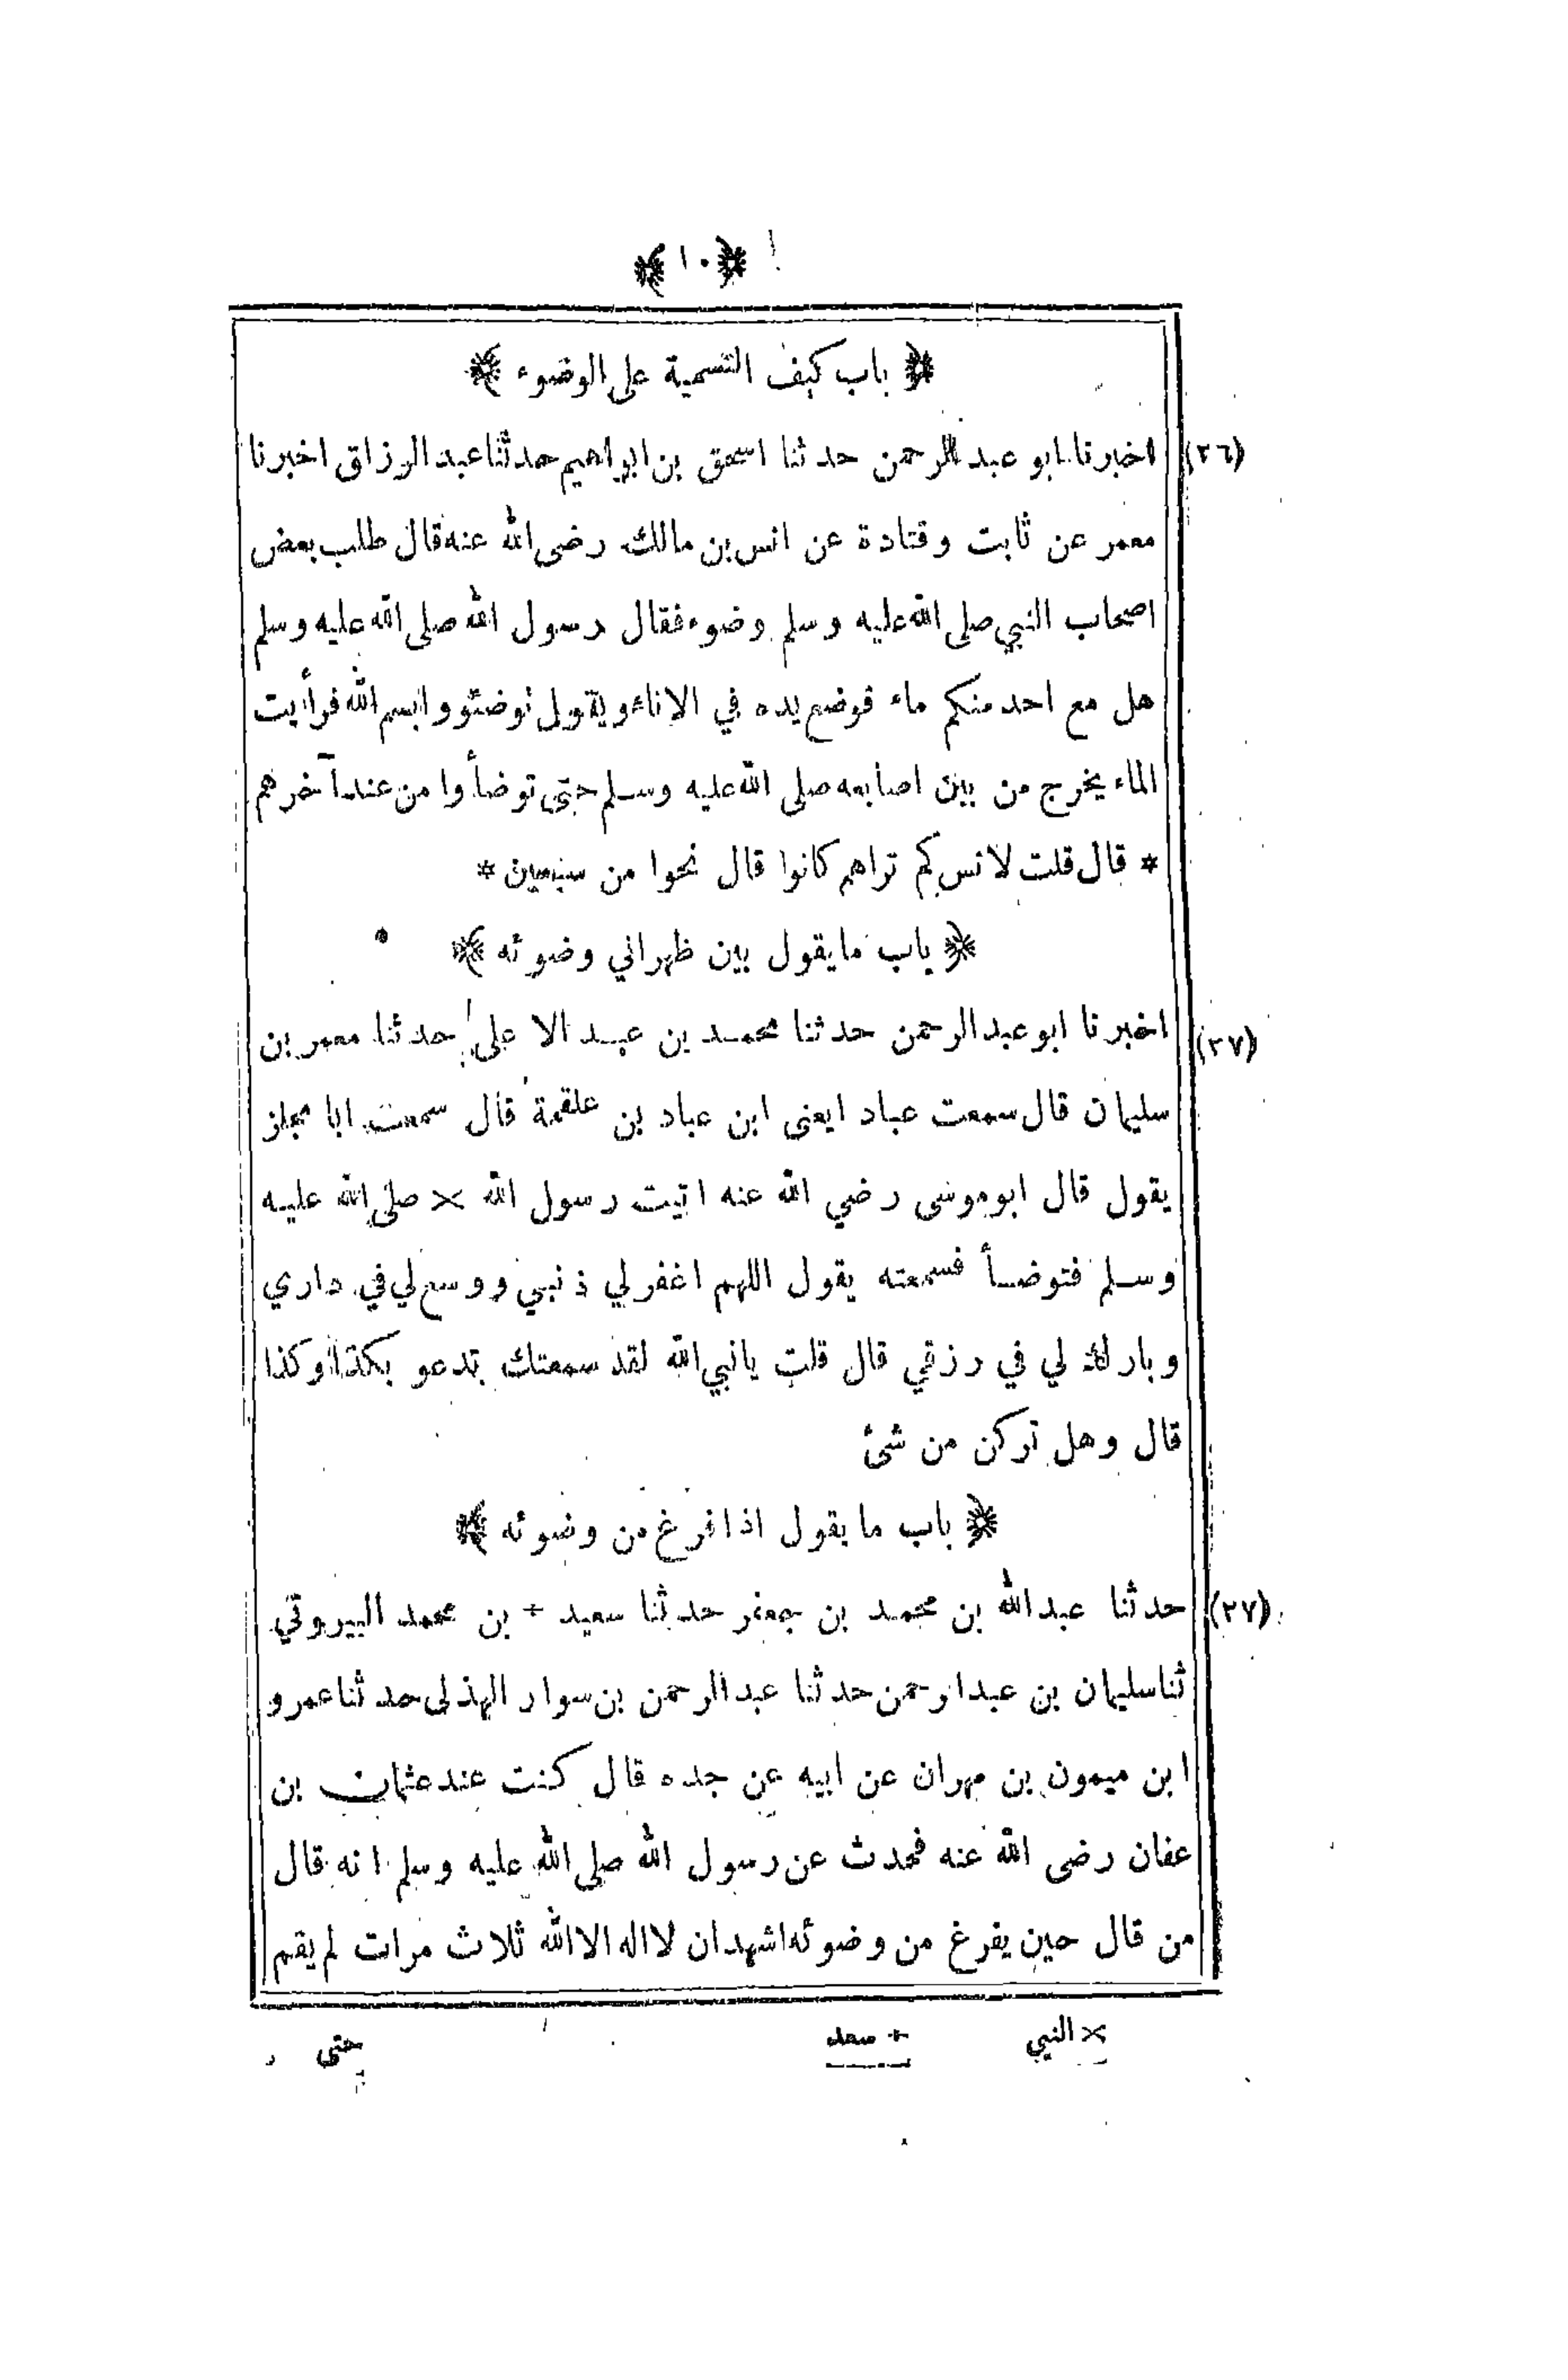 ﴿ ١٠ ﴾
﴿ باب كيف التسمية على الوضوء ﴾
(٢٦) اخبرنا ابو عبد الرحمن حدثنا اسحق بن ابراهيم حدثنا عبد الرزاق اخبرنا
معمر عن ثابت وقتادة عن انس بن مالك رضى الله عنه قال طلب بعض
اصحاب النبي صلى الله عليه وسلم وضوء فقال رسول الله صلى الله عليه وسلم
هل مع احد منكم ماء فوضع يده في الاناء ويقول توضئووا بسم الله فرأيت
الماء يخرج من بين اصابعه صلى الله عليه وسلم حتى توضأوا من عند آخرهم
* قال قلت لانس كم تراهم كانوا قال نحوا من سبعين *
﴿ باب ما يقول بين ظهراني وضوئه ﴾
(٢٧) اخبرنا ابو عبد الرحمن حدثنا محمد بن عبد الاعلى حدثنا معمر بن
سليمان قال سمعت عباد ايعنى ابن عباد بن علقمة قال سمعت ابا مجلز
يقول قال ابو موسى رضي الله عنه اتيت رسول الله × صلى الله عليه
وسلم فتوضأ فسمعته يقول اللهم اغفر لي ذنبي ووسع لي في داري
وبارك لي في رزقي قال قلت يا نبي الله لقد سمعتك تدعو بكذا وكذا
قال وهل تركن من شئ
﴿ باب ما يقول اذا فرغ من وضوئه ﴾
(٢٧) حدثنا عبد الله بن محمد بن جعفر حدثنا سعيد + بن محمد البيروتي
ثنا سليمان بن عبد الرحمن حدثنا عبد الرحمن بن سوار الهذلى حدثنا عمرو
ابن ميمون بن مهران عن ابيه عن جده قال كنت عند عثمان بن
عفان رضى الله عنه فحدث عن رسول الله صلى الله عليه وسلم انه قال
من قال حين يفرغ من وضوئه اشهد ان لا اله الا الله ثلاث مرات لم يقم
× النبي + سعد حتى